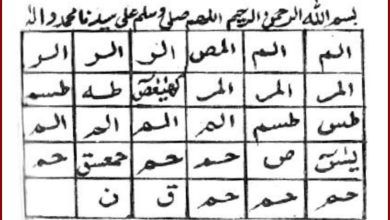 بسم الله الرحمن الرحيم اللهم صلى وسلم على سيدنا محمد واله
الم الم المص الر الر الر
المر المر المر كهيعص طه طسم
طس طسم الم الم الم الم
يس ص حم حم حمعسق حم
حم حم حم ق ن